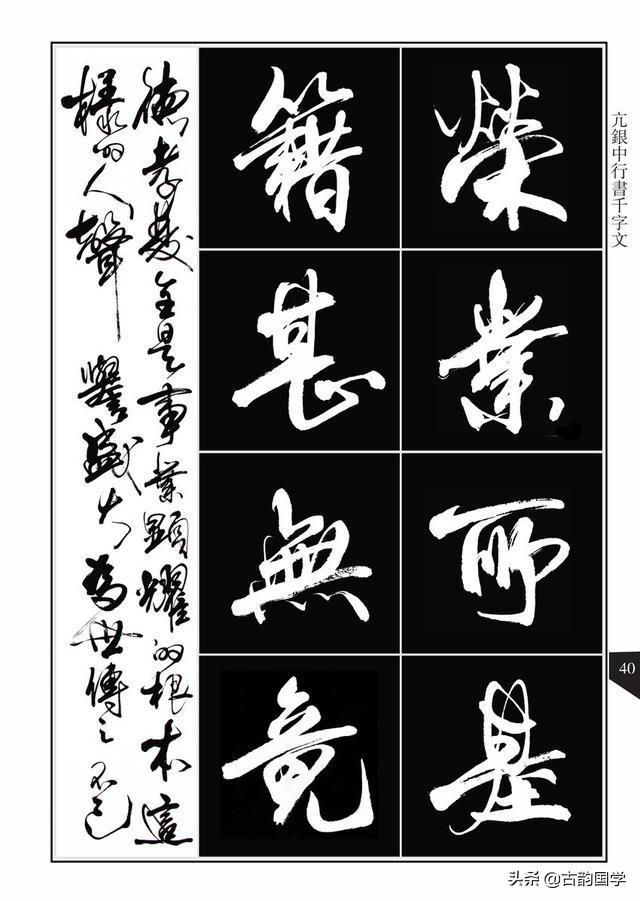 亢銀中行書千字文
榮業所基
籍甚無竟
德孝雙全是事業顯耀的根本這
樣的人聲譽盛大為世傳之不已
40
头条 @古韵国学